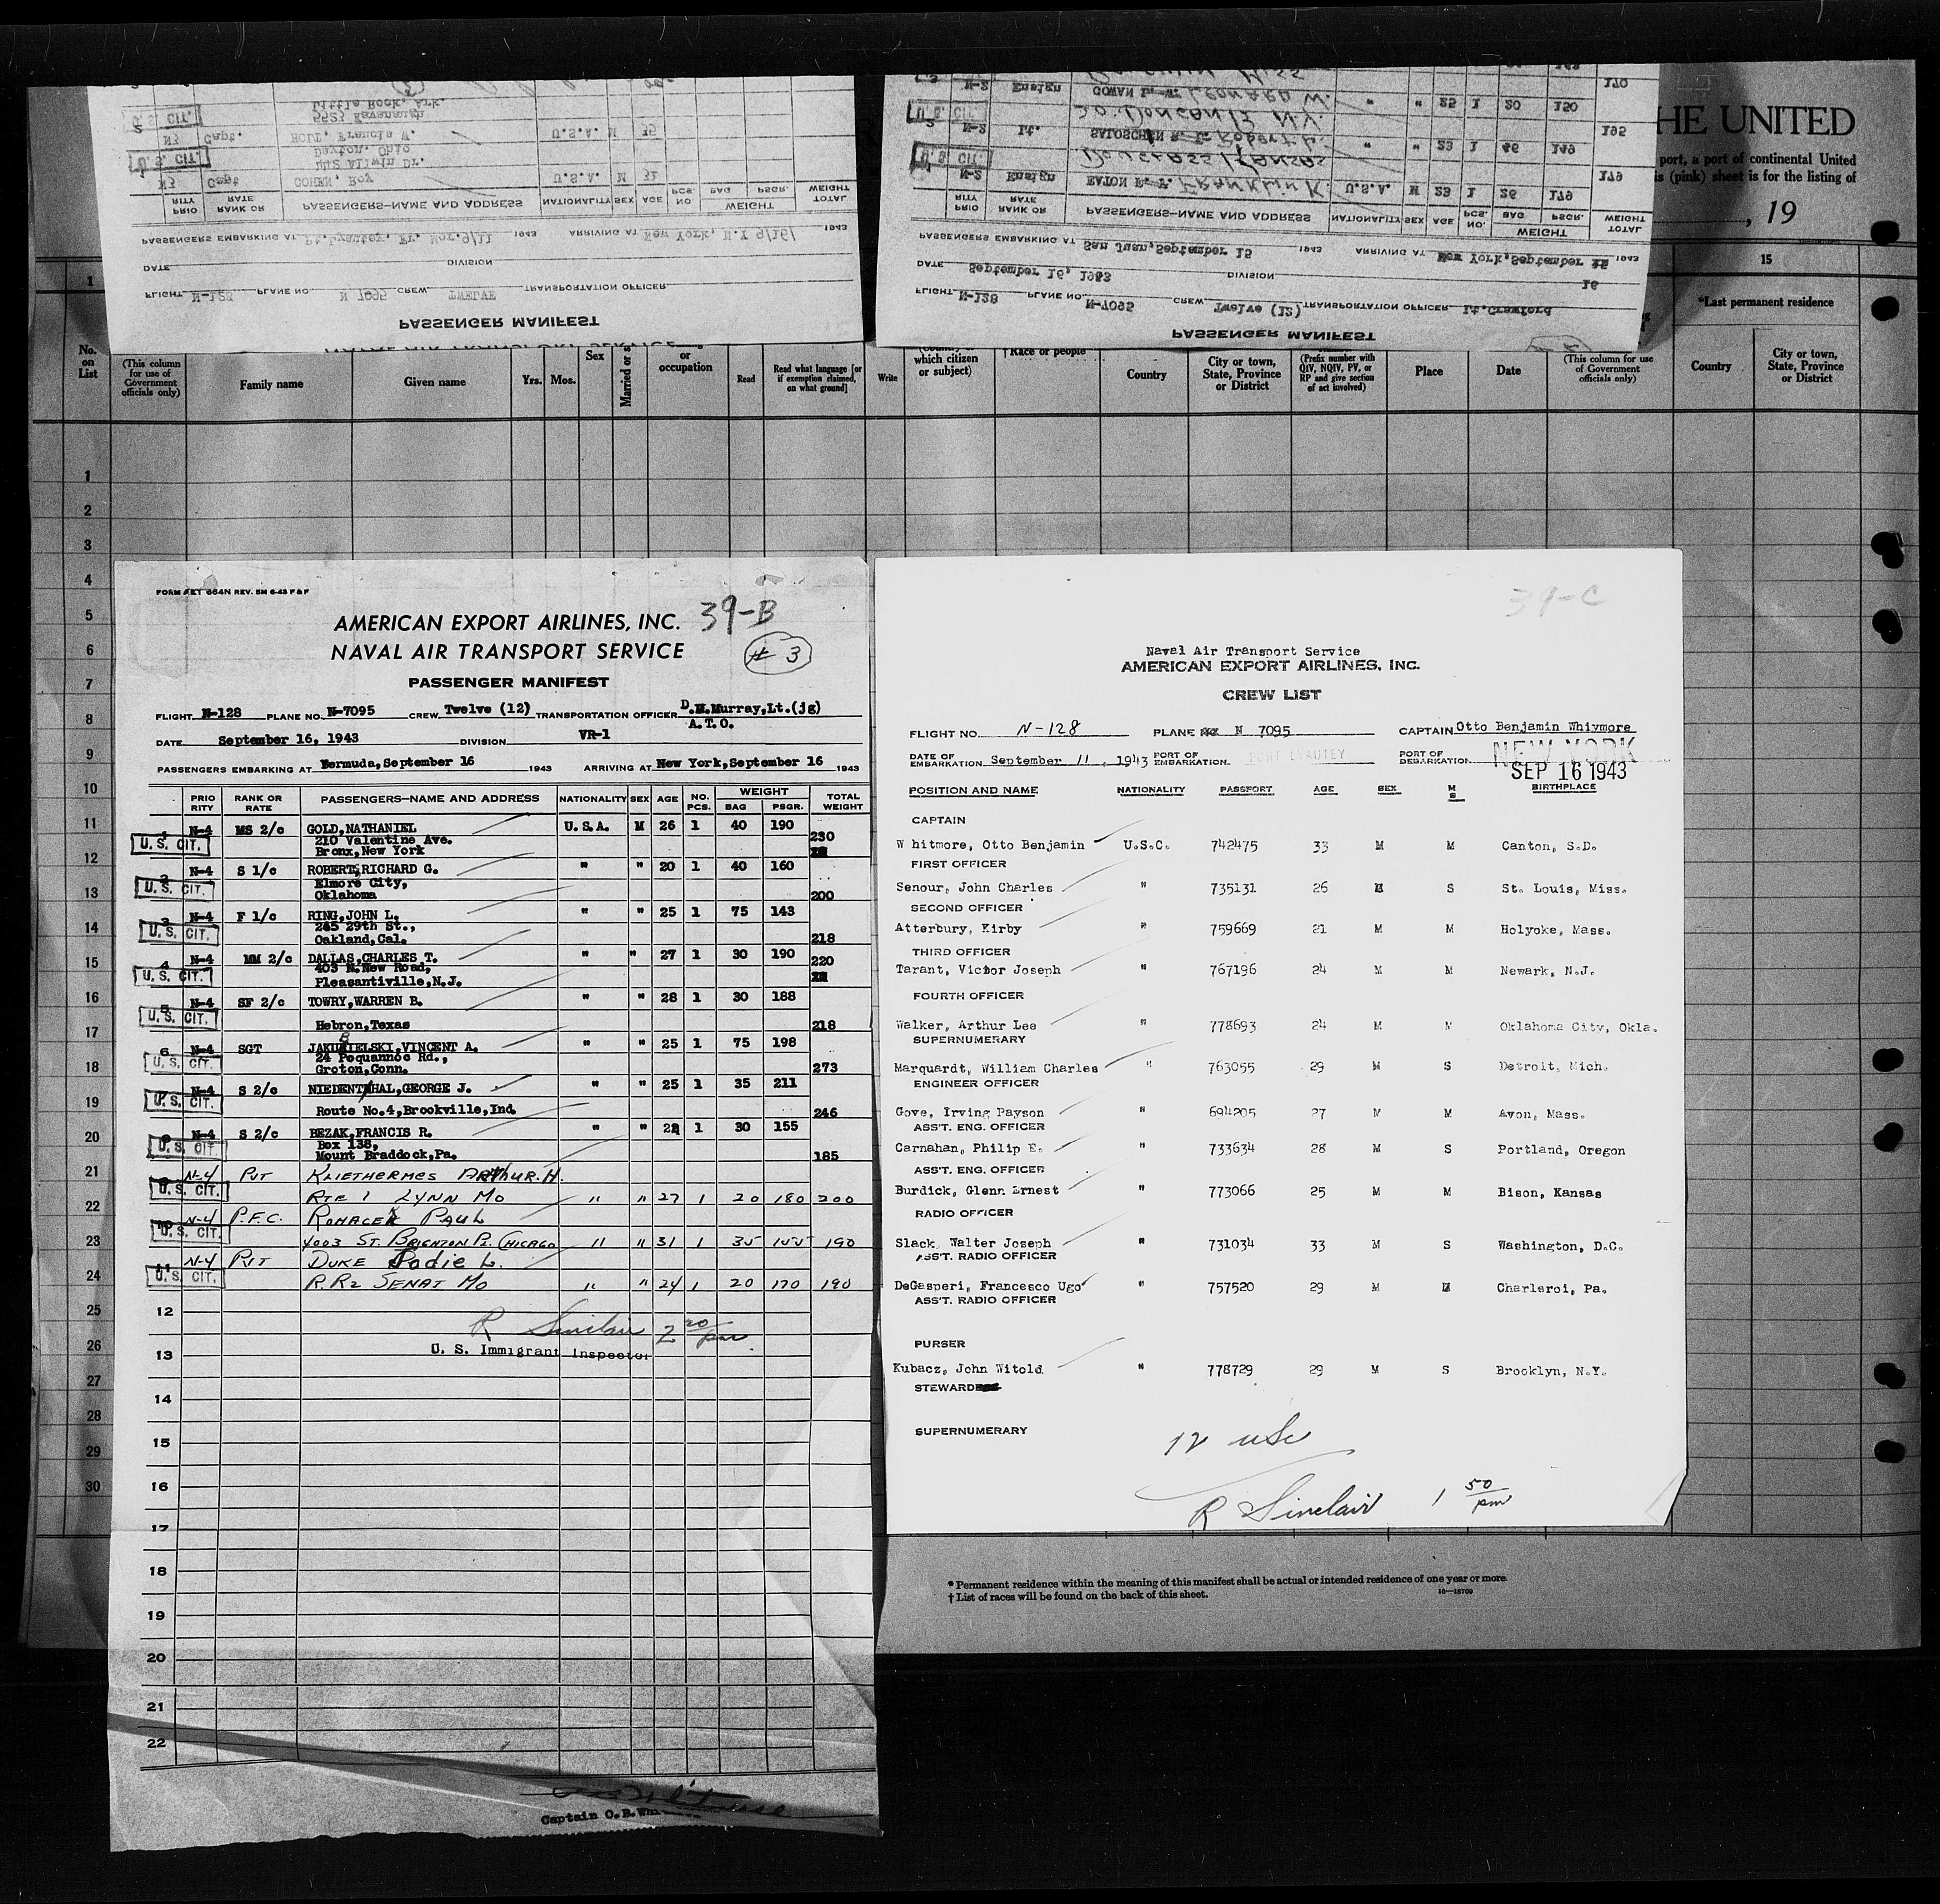 HE UNITED
port, a port of continental United
is (pink) sheet is for the listing of
, 19
15
*Last permanent residence
No.
on
List
(This column
for use of
Government
officials only)
Family name
Given name
Yrs.
Mos.
Sex
Married or s
or
occupation
Read
Read what language [or
if exemption claimed,
on what ground]
Write
which citizen
or subject)
†Race or people
Country
City or town,
State, Province
or District
(Prefix number with
QIV, NQIV, PV, or
RP and give section
of act involved)
Place
Date
(This column for use
of Government
officials only)
Country
City or town,
State, Province
or District
PASSENGER MANIFEST
FLIGHT N-128 PLANE NO. N 7095 CREW TWELVE TRANSPORTATION OFFICER
DATE DIVISION
PASSENGERS EMBARKING AT Pt.Lyautey, Fr. Mor.9/11 1943 ARRIVING AT New York, N.Y 9/16/ 1943
PRIO RITY RANK OR RATE PASSENGERS—NAME AND ADDRESS NATIONALITY SEX AGE NO PCS. WEIGHT BAG PSGR. TOTAL WEIGHT
1 N3 Capt COHEN, Roy U.S.A. M 31
U. S. CIT.
442 Allwin Dr.
Dayton, Ohio
2 N3 Capt. HOLT, Francis W. U.S.A. M 35
U. S. CIT.
5523 Kavanaugh
Little Rock, Ark.
PASSENGER MANIFEST
FLIGHT N-128 PLANE NO N-7095 CREW Twelve (12) TRANSPORTATION OFFICER Lt.Crawford
DATE September 16, 1943 DIVISION
16
PASSENGERS EMBARKING AT San Juan,September 15 1943 ARRIVING AT New York,September 1943
PRIO RITY RANK OR RATE PASSENGERS—NAME AND ADDRESS NATIONALITY SEX AGE NO. PCS. WEIGHT BAG PSGR. TOTAL WEIGHT
N-2 Ensign EATON FRANKLIN K. U.S.A. M 23 1 26 179 179
U. S. CIT.
DOUGLASS, KANSAS
2 N-2 Lt. SALOSCHEN Robert L. " " 23 1 46 149 195
U. S. CIT.
N-2 Ensign GOWAN LEONARD W. " " 25 1 20 150 170
FORM AET 664N REV. 5M 6-43 P & F
39-B
AMERICAN EXPORT AIRLINES, INC.
NAVAL AIR TRANSPORT SERVICE
# 3
PASSENGER MANIFEST
FLIGHT N-128 PLANE NO. N-7095 CREW Twelve (12) TRANSPORTATION OFFICER D.M.Murray,Lt.(jg)
A.T.O.
DATE September 16, 1943 DIVISION VR-1
PASSENGERS EMBARKING AT Bermuda,September 16 1943 ARRIVING AT New York,September 16 1943
PRIO RITY RANK OR RATE PASSENGERS—NAME AND ADDRESS NATIONALITY SEX AGE NO. PCS. WEIGHT BAG PSGR. TOTAL WEIGHT
1 N-4 MS 2/c GOLD,NATHANIEL U.S.A. M 26 1 40 190
U. S. CIT.
210 Valentine Ave. 230
Bronx,New York
2 N-4 S 1/c ROBERTS,RICHARD G. " " 20 1 40 160
U. S. CIT.
Elmore City,
Oklahoma 200
3 N-4 F 1/c RING,JOHN L. " " 25 1 75 143
U. S. CIT.
245 29th St.,
Oakland,Cal. 218
4 N-4 MM 2/c DALLAS,CHARLES T. " " 27 1 30 190
U. S. CIT.
403 N.New Road, 220
Pleasantiville,N.J.
5 N-4 SF 2/c TOWRY,WARREN B. " " 28 1 30 188
U. S. CIT.
Hebron,Texas 218
6 N-4 SGT JAKUBIELSKI,VINCENT A. " " 25 1 75 198
U. S. CIT.
24 Poquannoc Rd.,
Groton,Conn. 273
7 N-4 S 2/c NIEDENTHAL,GEORGE J. " " 25 1 35 211
U. S. CIT.
Route No.4,Brookville,Ind. 246
8 N-4 S 2/c BEZAK,FRANCIS R. " " 1 30 155
U. S. CIT.
Box 138,
Mount Braddock,Pa. 185
9 N-4 PVT KLIETHERMES ARTHUR.H.
U. S. CIT.
RTE 1 LYNN MO " " 27 1 20 180 200
10 N-4 P.F.C. ROMACEK PAUL
U. S. CIT.
4003 ST. BRIGHTON PL. CHICAGO " " 31 1 35 155 190
11 N-4 PVT DUKE Sadie L.
U. S. CIT.
R.R2 SENAT MO " " 24 1 20 170 190
12
R Sinclair 2 20/pm
U. S. Immigrant Inspector
13
14
15
16
17
18
19
20
21
22
Captain O.B.Whi
39-C
Naval Air Transport Service
AMERICAN EXPORT AIRLINES, INC.
CREW LIST
FLIGHT NO. N-128 PLANE N 7095 CAPTAIN Otto Benjamin Whiymore
DATE OF EMBARKATION September 11, 1943 PORT OF EMBARKATION PORT LYAUTEY PORT OF DEBARKATION NEW YORK
SEP 16 1943
POSITION AND NAME NATIONALITY PASSPORT AGE SEX M S BIRTHPLACE
CAPTAIN
Whitmore, Otto Benjamin U.S.C. 742475 33 M M Canton, S.D.
FIRST OFFICER
Senour, John Charles " 735131 26 M S St. Louis, Miss.
SECOND OFFICER
Atterbury, Kirby " 759669 21 M M Holyoke, Mass.
THIRD OFFICER
Tarant, Victor Joseph " 767196 24 M M Newark, N.J.
FOURTH OFFICER
Walker, Arthur Lee " 778693 24 M M Oklahoma City, Okla.
SUPERNUMERARY
Marquardt, William Charles " 763055 29 M S Detroit, Mich.
ENGINEER OFFICER
Gove, Irving Payson " 694205 27 M M Avon, Mass.
ASS'T. ENG. OFFICER
Carnahan, Philip E. " 733634 28 M S Portland, Oregon
ASS'T. ENG. OFFICER
Burdick, Glenn Ernest " 773066 25 M M Bison, Kansas
RADIO OFFICER
Slack, Walter Joseph " 731034 33 M S Washington, D.C.
ASS'T. RADIO OFFICER
DeGasperi, Francesco Ugo " 757520 29 M M Charleroi, Pa.
ASS'T. RADIO OFFICER
PURSER
Kubacz, John Witold " 778729 29 M S Brooklyn, N.Y.
STEWARD
SUPERNUMERARY
12 USC
R Sinclair 1 50/pm
1
1
2
3
4
5
6
7
8
9
10
11
12
13
14
15
16
17
18
19
20
21
22
23
24
25
26
27
28
29
30
* Permanent residence within the meaning of this manifest shall be actual or intended residence of one year or more.
† List of races will be found on the back of this sheet.
16—18700